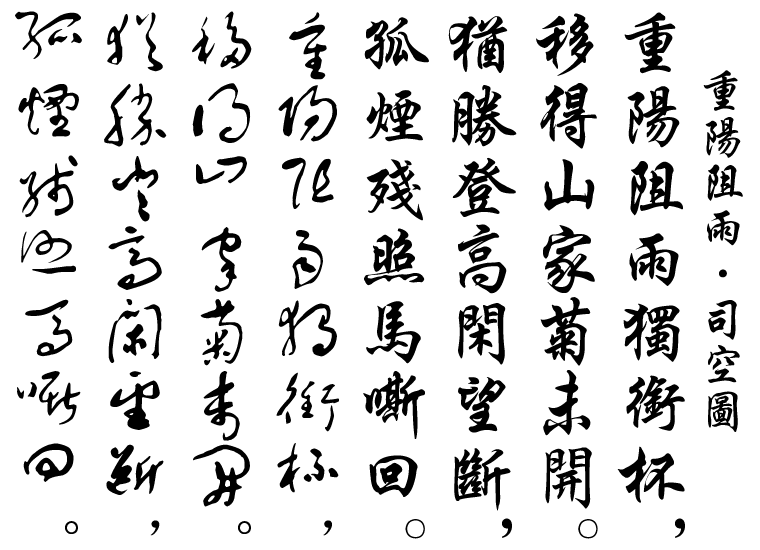 重陽阻雨·司空圖
重陽阻雨獨銜杯,
移得山家菊未開。
猶勝登高閑望斷,
孤煙殘照馬嘶回。
重陽阻雨獨銜杯,
移得山家菊未開。
猶勝登高閑望斷,
孤煙殘照馬嘶回。